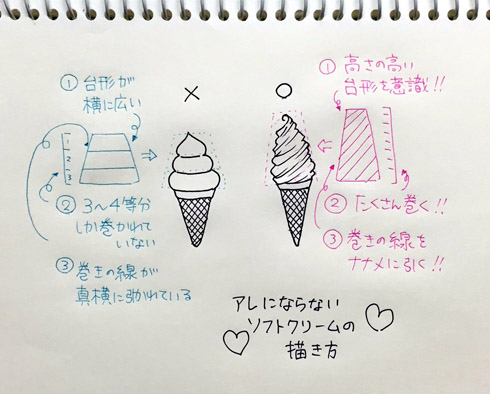 ① 台形が
横に広い
×
1
2
3
② 3〜4等分
しか巻かれて
いない
③ 巻きの線が
真横に引かれている
○
① 高さの高い
台形を意識!!
② たくさん巻く!!
③ 巻きの線を
ナナメに引く!!
アレにならない
ソフトクリームの
描き方